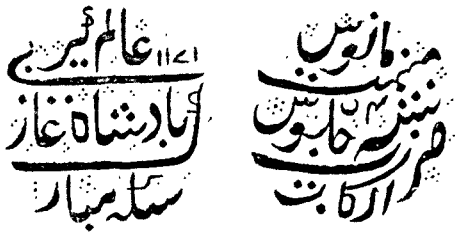 عالم گیر
بادشاه غازی
سکه مبارک
مانوس
میمنت
سنه جلوس
ضرب
ارکات